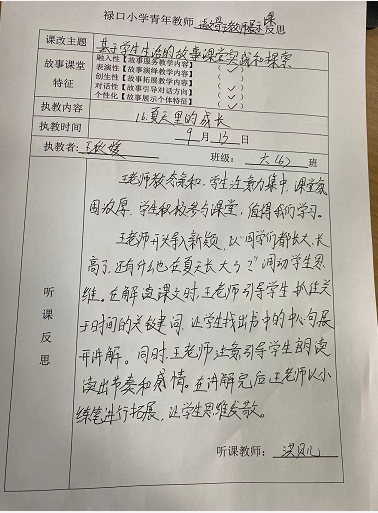 禄口小学青年教师 课反思
课改主题 基于学生生活的故事课堂实践和探索
故事课堂特征
融入性【故事服务教学内容】 (✓)
表演性【故事演绎教学内容】 (✓)
创生性【故事拓展教学内容】 ( )
对话性【故事引导对话方向】 (✓)
个性化【故事展示个体特征】 (✓)
执教内容 16.夏天里的成长
执教时间 9月13日
执教者: 王 班级: 六(6) 班
听课反思
王老师教态亲和,学生注意力集中,课堂氛
围浓厚,学生积极参与课堂,值得我们学习。
王老师开头导入新颖,以“同学们都长大、长
高了,还有什么也在夏天长大了?”调动学生思
维。在解读课文时,王老师引导学生抓住关
于时间的关键词,让学生找出书中的中心句展
开讲解。同时,王老师注意引导学生朗读
读出节奏和感情。在讲解完后王老师以小
练笔进行拓展,让学生思维发散。
听课教师: 洪